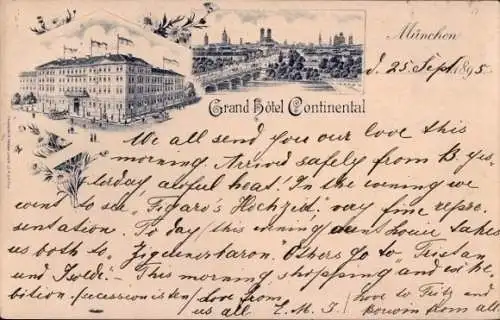 München
Grand Hôtel Continental
d. 25 Sept. 1895.
We all send you our love this
morning. Arrived safely from B. yes-
terday, awful heat! In the evening we
went to see "Figaro's Hochzeit", very fine repre-
sentation. To day (this evening) aunt takes
us both to "Zigeunerbaron". Others go to "Tristan
und Isolde". This morning shopping and exhi-
bition. (secession isten)
Love from
us all E. M. I.
love to Fritz and
from all